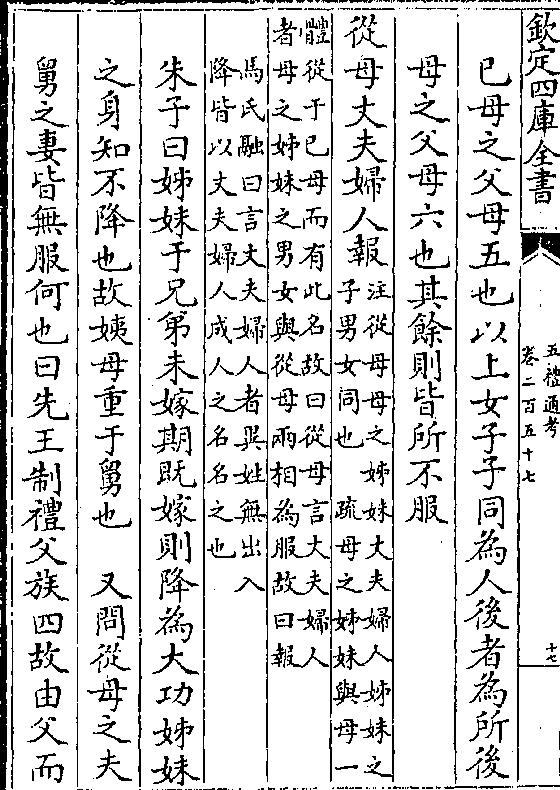 欽定四庫全書
五禮通考
卷二百五十七
十七
己母之父母五也以上女子子同為人後者為所後
母之父母六也其餘則皆所不服
從母丈夫婦人報
注從母母之姊妹丈夫婦人姊妹之
子男女同也　疏母之姊妹與母一
體從于己母而有此名故曰從母言丈夫婦人
者母之姊妹之男女與從母兩相為服故曰報
馬氏融曰言丈夫婦人者異姓無出入
降皆以丈夫婦人成人之名名之也
朱子曰姊妹于兄弟未嫁期既嫁則降為大功姊妹
之身知不降也故姨母重于舅也　又問從母之夫
舅之妻皆無服何也曰先王制禮父族四故由父而